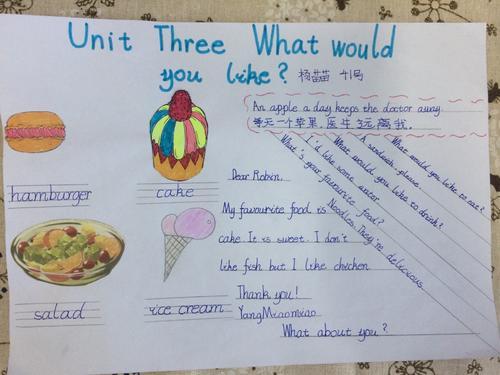 Unit Three What would
you like? 杨苗苗 41号
An apple a day keeps the doctor away.
每天一个苹果,医生远离我。
What would you like to eat?
A sandwich, please.
What would you like to drink?
I'd like some water
What's your favourite food?
Noodles. They're delicious.
hamburger
cake
salad
ice cream
Dear Robin,
My favourite food is
cake. It is sweet. I don't
like fish but I like chicken.
Thank you!
YangMiaomiao
What about you?